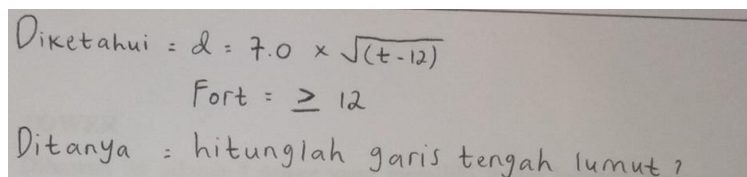 Diketahui = d = 7.0 × √(t-12)
Fort = ≥ 12
Ditanya = hitunglah garis tengah lumut?